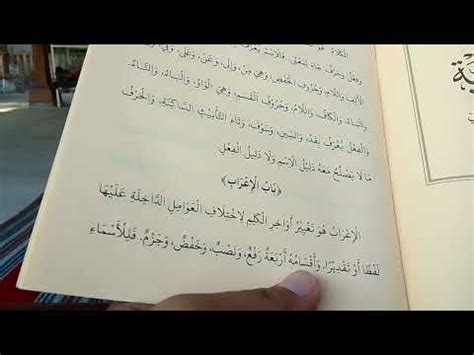 وَفِعْلٌ وَحَرْفٌ جَاءَ لِمَعْنًى. فَالِاسْمُ يُعْرَفُ
الْأَلِفِ وَاللَّامِ، وَحُرُوفِ الْخَفْضِ، وَهِيَ مِنْ، وَإِلَى، وَعَنْ، وَعَلَى، وَفِي،
وَالْبَاءُ، وَالْكَافُ، وَاللَّامُ، وَحُرُوفِ الْقَسَمِ، وَهِيَ الْوَاوُ، وَالْبَاءُ، وَالتَّاءُ.
وَالْفِعْلُ يُعْرَفُ بِقَدْ، وَالسِّينِ، وَسَوْفَ، وَتَاءِ التَّأْنِيثِ السَّاكِنَةِ. وَالْحَرْفُ
مَا لَا يَصْلُحُ مَعَهُ دَلِيلُ الِاسْمِ وَلَا دَلِيلُ الْفِعْلِ.
﴿بَابُ الْإِعْرَابِ﴾
الْإِعْرَابُ هُوَ تَغْيِيرُ أَوَاخِرِ الْكَلِمِ لِاخْتِلَافِ الْعَوَامِلِ الدَّاخِلَةِ عَلَيْهَا
لَفْظًا أَوْ تَقْدِيرًا. وَأَقْسَامُهُ أَرْبَعَةٌ رَفْعٌ، وَنَصْبٌ، وَخَفْضٌ، وَجَزْمٌ. فَلِلْأَسْمَاءِ